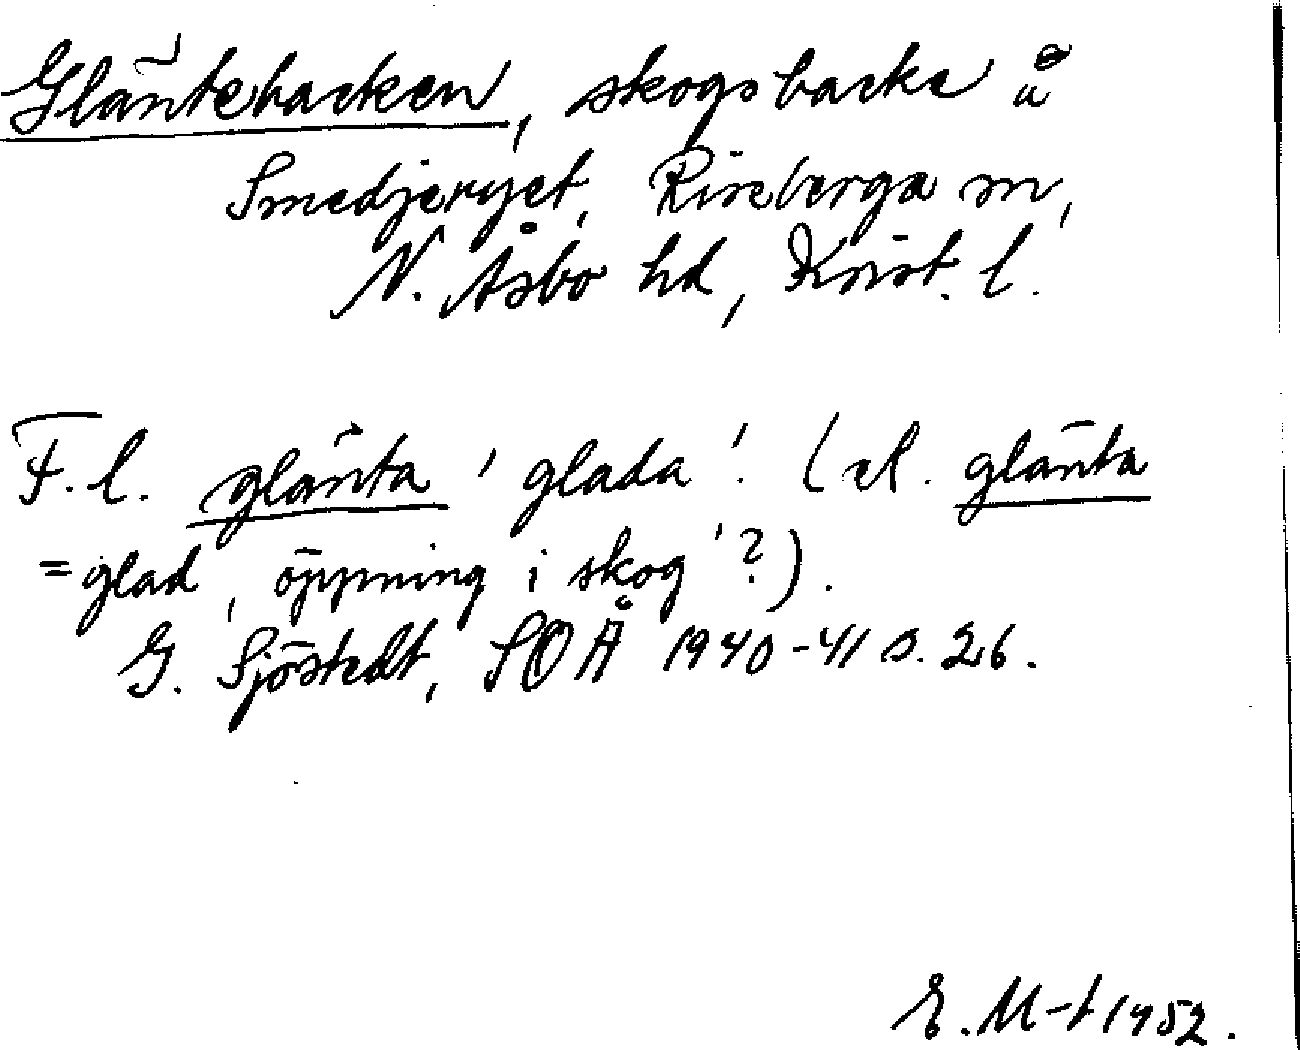 Gläntebacken, skogsbacke å
Smedjeryet, Riseberga sn,
N. Åsbo hd, Krist. l.
F. l. glänta 'glada'. (el. glänta
=glad, öppning i skog'?).
G. Sjöstedt, SOÅ 1940-41 s. 26.
E. M-t 1952.